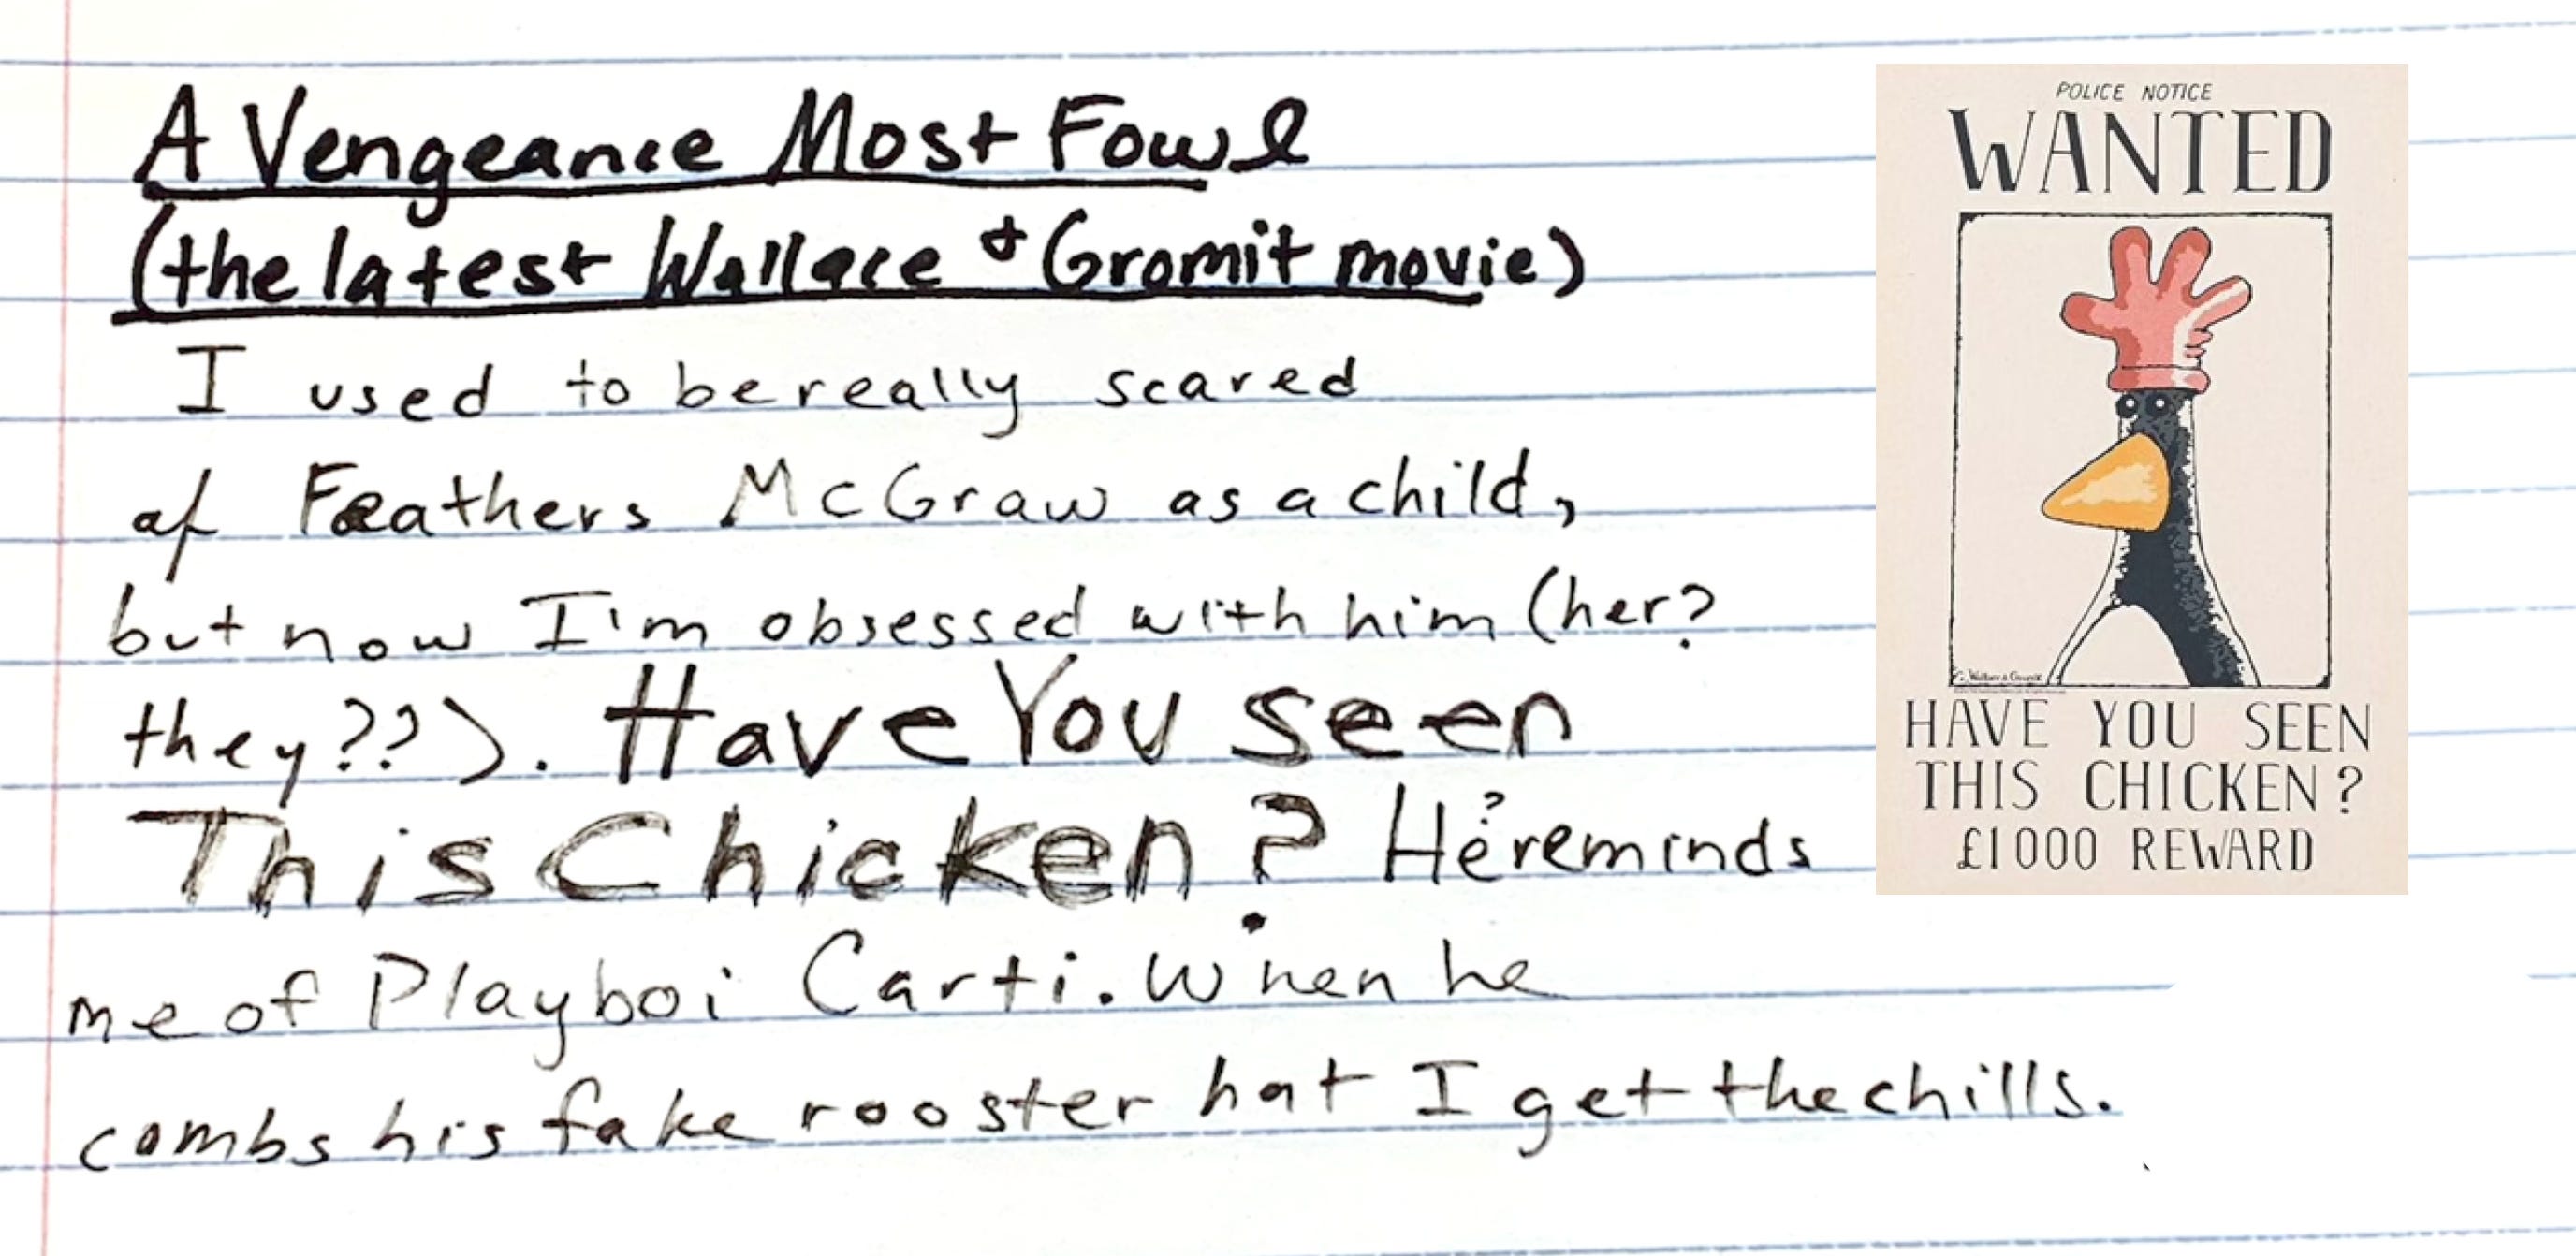 A Vengeance Most Fowl
(the latest Wallace + Gromit movie)
I used to be really scared
of Feathers McGraw as a child,
but now I'm obsessed with him (her?
they??). Have You seen
This Chicken? He? reminds
me of Playboi Carti. When he
combs his fake rooster hat I get the chills.
POLICE NOTICE
WANTED
Wallace & Gromit
HAVE YOU SEEN
THIS CHICKEN?
£1000 REWARD